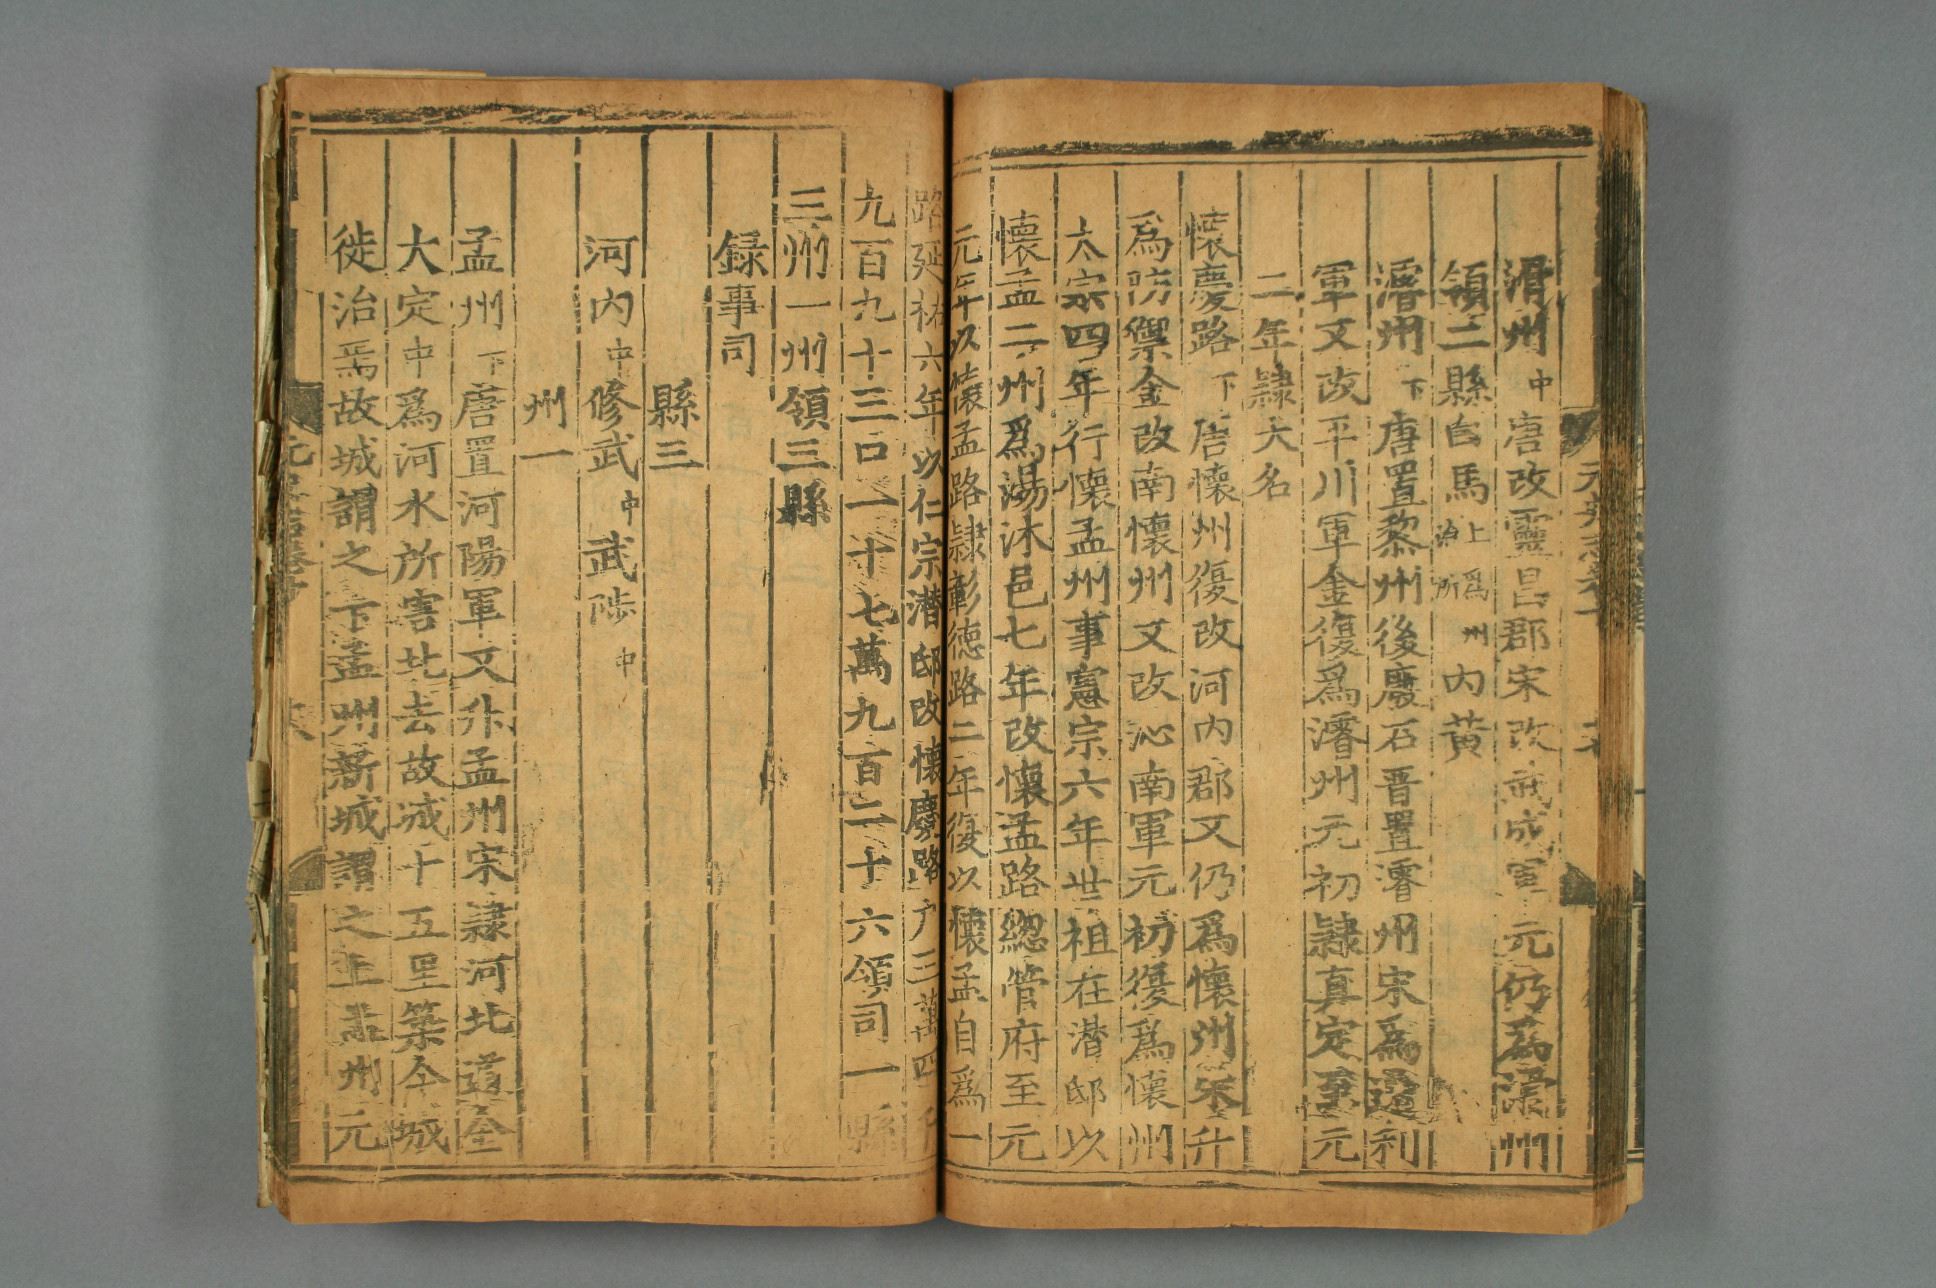 滑州中唐改靈昌郡宋改武成軍元仍爲滑州
領二縣白馬上爲州治所內黃
濬州下唐置黎州後廢石晋置濬州宋爲通利
軍又改平川軍金復爲濬州元初隷真定至元
二年隷大名
懷慶路下唐懷州復改河內郡又仍爲懷州宋升
爲防禦金改南懷州又改沁南軍元初復爲懷州
太宗四年行懷孟州事憲宗六年世祖在潜邸以
懷孟二州爲湯沐邑七年改懷孟路緫管府至元
元年以懷孟路隷彰德路二年復以懷孟自爲一
路延祐六年以仁宗潜邸改懷慶路户三萬四千
九百九十三口一十七萬九百二十六領司一縣
三州一州領三縣
録事司
縣三
河內中修武中武陟中
州一
孟州下唐置河陽軍又升孟州宋隷河北道金
大定中爲河水所害北去故城十五里築今城
徙治焉故城謂之下孟州新城謂之上孟州元